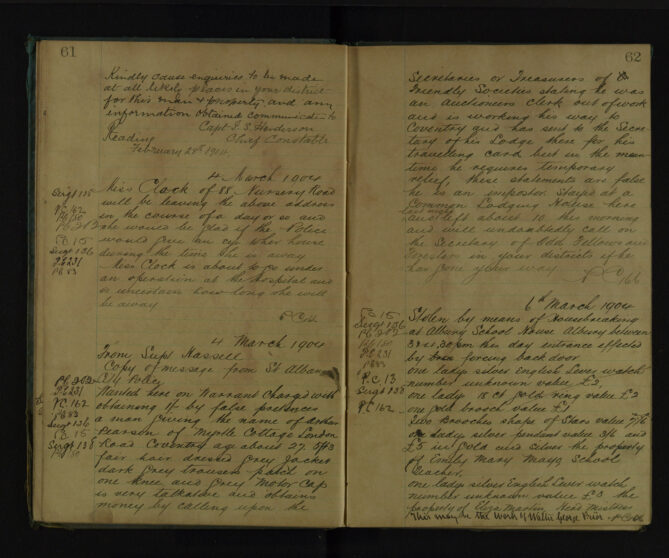 61
Kindly cause enquiries to be made
at all likely places in your district
for this man & property and any
information obtained communicated to
Capt. Henderson
Reading Chief Constable
February 29th 1904
4 March 1904
Sergt 135
Miss Clack of 88 Nursery Road
will be leaving the above address
PC 162
in the course of a day or so and
she would be glad if the Police
PC 15
would give an eye to her house
Sergt 136
during the time she is away
PC 231
Miss Clack is about to go under
PC 83
an operation at the hospital and
is uncertain how long she will
be away
4 March 1904
From Supt Hassell
Copy of message from St Albans
City Police
Wanted here on Warrant Charged with
obtaining by false pretences
PC 162
a man giving the name of Arthur
PC 83
Pearson of Myrtle Cottage London
Sergt 136
Road Coventry age about 27
PC 15
fair hair dressed Grey Jacket
Sergt 138
dark Grey trousers patch on
one knee and Grey Motor Cap
is very talkative and obtains
money by calling upon the
62
Secretaries or Treasurers of
Friendly Societies stating he was
an auctioneers clerk out of work
and is working his way to
Coventry and has sent to the Secre-
tary of his Lodge there for his
travelling card but in the mean
time he requires temporary
relief, these statements are false
he is an impostor stayed at a
Common Lodging House here
last night
and left about 10 this morning
and will undoubtedly call on
the Secretary of Odd Fellows and
Foresters in your districts if he
has gone your way
PC 166
6th March 1904
PC 15
Stolen by means of Housebreaking
Sergt 136
at Albury School House Albury between
this day entrance effected
PC 231
by forcing back door
PC 83
one ladys silver English Lever watch
P.C. 13
number unknown value £2,
Sergt 138
one ladys 18 ct gold ring value £2
PC 162
one gold brooch value £1
two Brooches shape of Stars value 7/6
one ladys silver pendant value 3/6 and
£5 in Gold and Silver the property
of Emily Mary Mays School
Teacher,
one ladys silver English Lever watch
number unknown value £3 the
property of Eliza Martin, Head Mistress
This may be the work of Walter George Prior